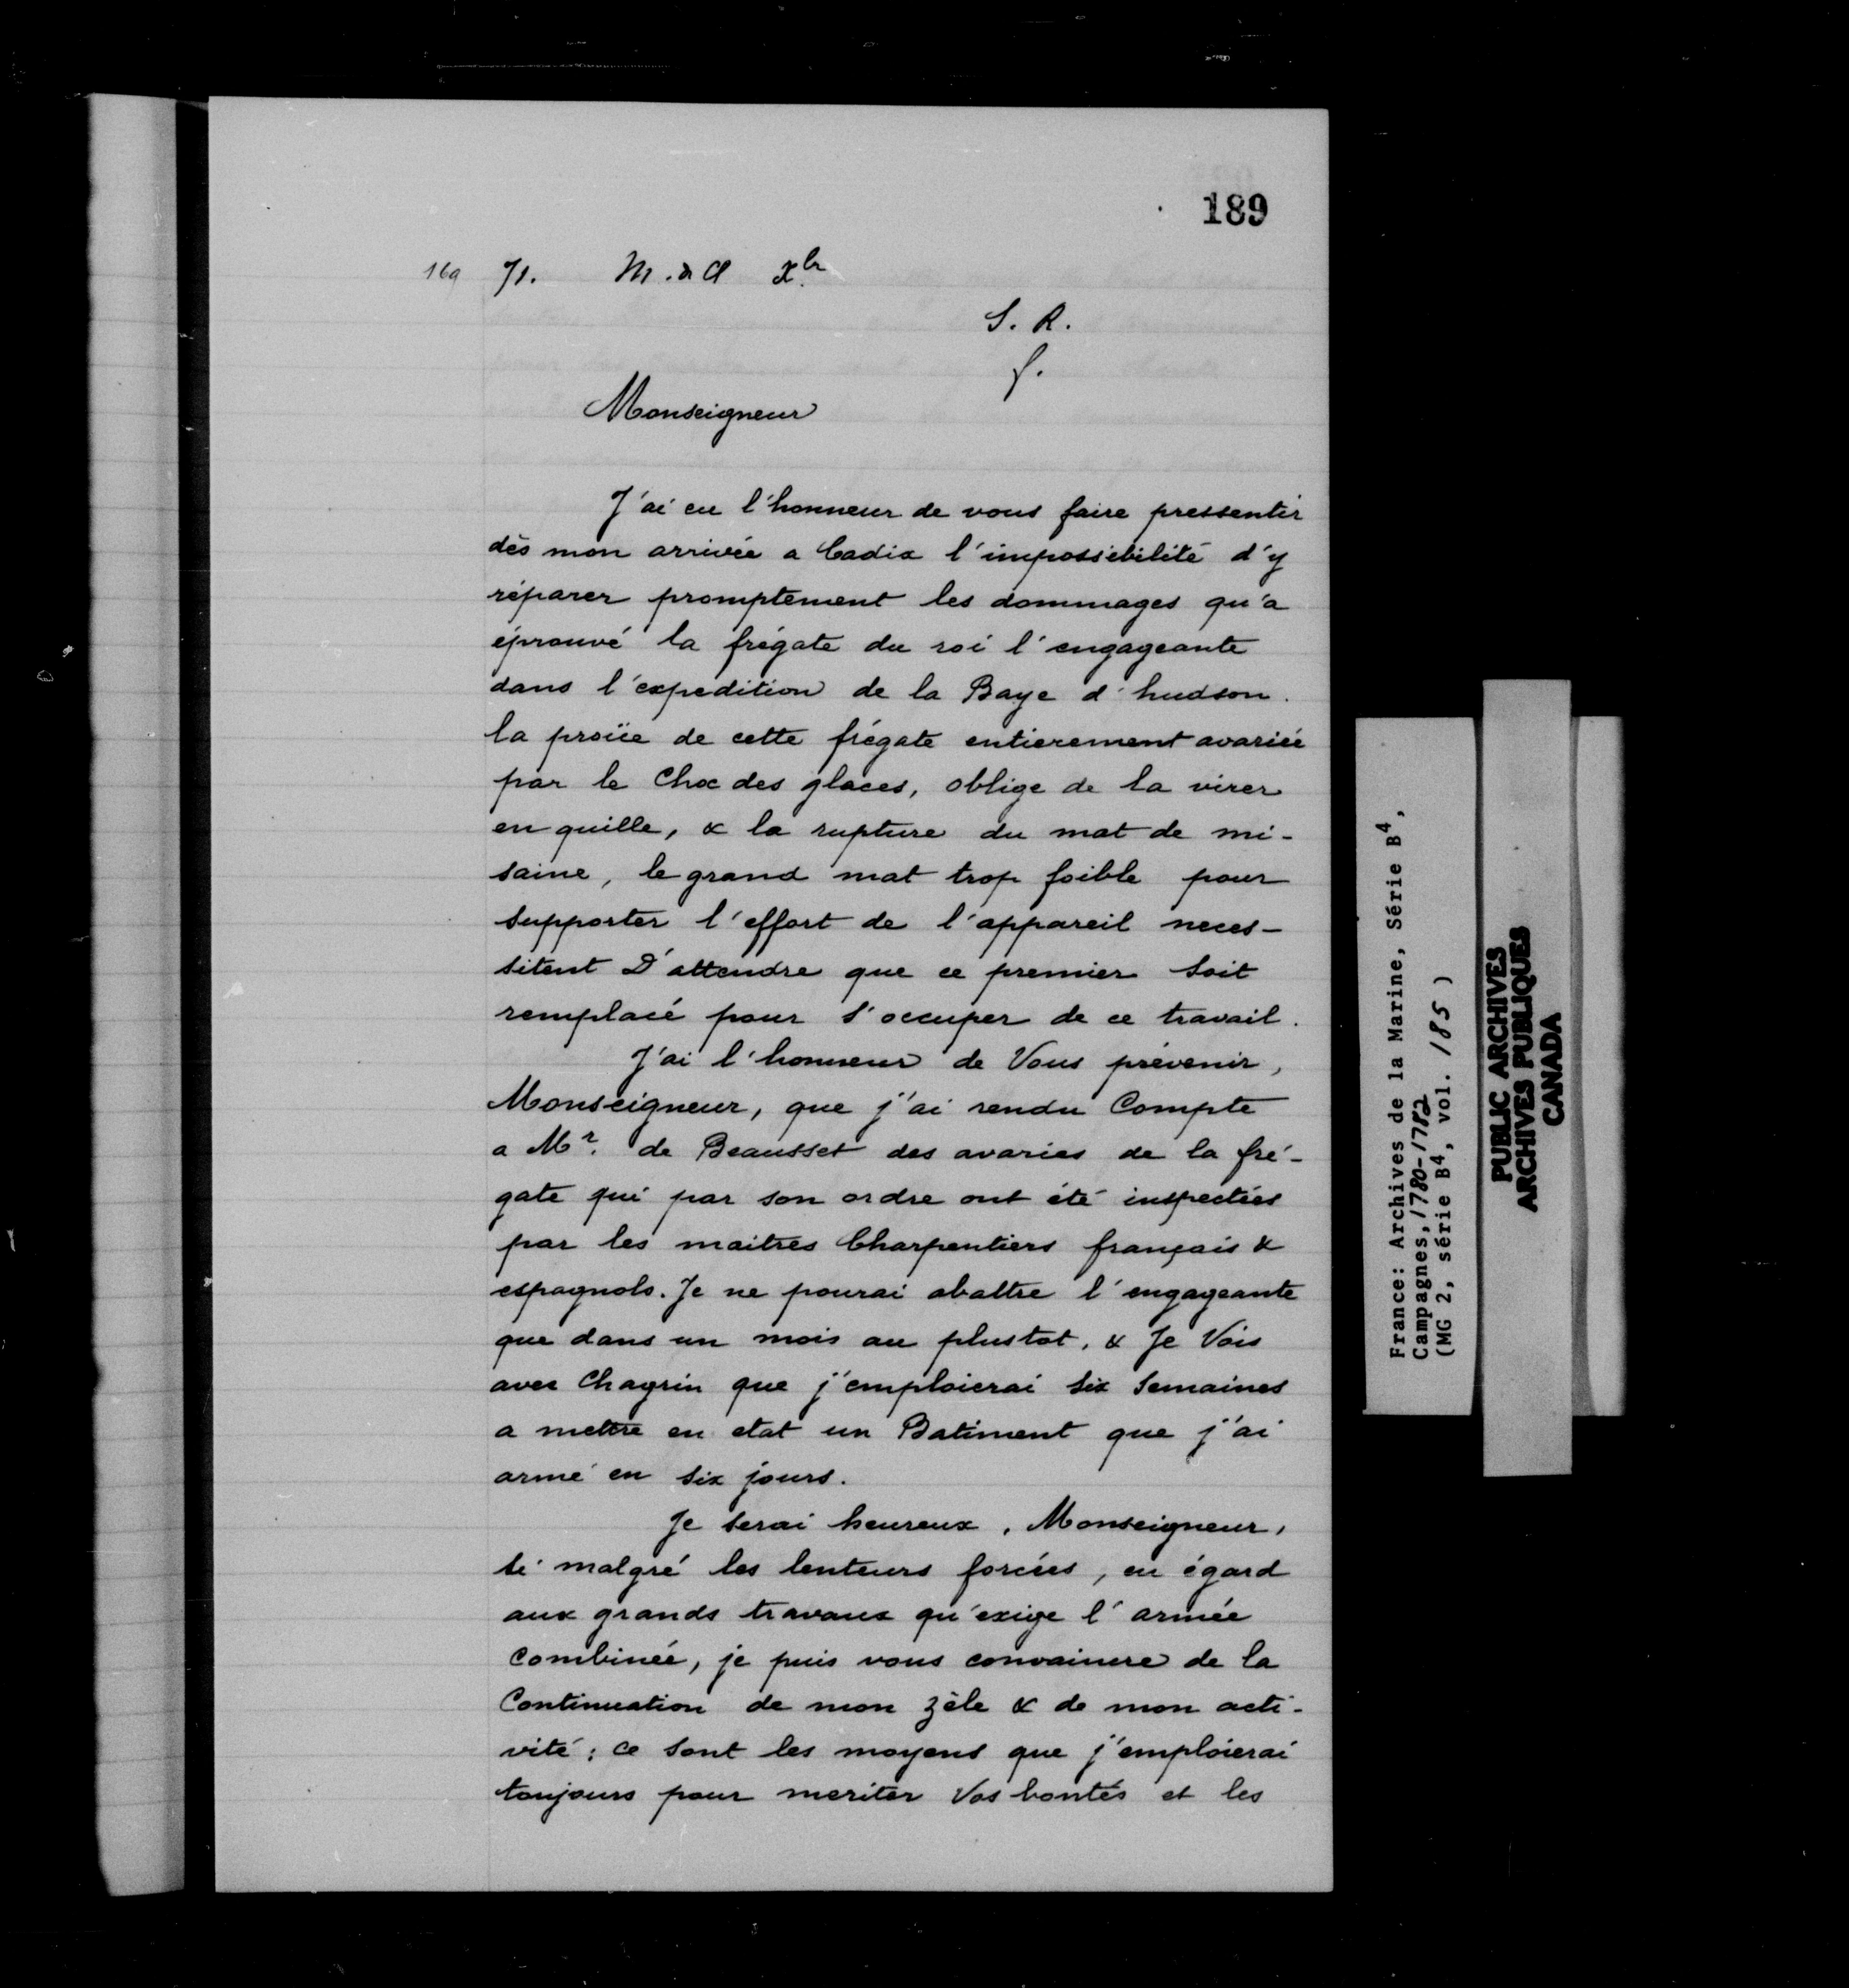 189
169 M. & A Xbr
S. R.
f.
Monseigneur
J'ai eu l'honneur de vous faire pressentir
dès mon arrivée a Cadix l'impossibilité d'y
réparer promptement les dommages qu'a
éprouvé la frégate du roi l'engageante
dans l'expedition de la Baye d'hudson.
la proüe de cette frégate entierement avariée
par le Choc des glaces, oblige de la virer
en quille, & la rupture du mat de mi-
saine, le grand mat trop foible pour
supporter l'effort de l'appareil neces-
sitent D'attendre que ce premier soit
remplacé pour s'occuper de ce travail.
J'ai l'honneur de Vous prévenir,
Monseigneur, que j'ai rendu Compte
a Mr. de Beausset des avaries de la fré-
gate qui par son ordre ont été inspectées
par les maitres Charpentiers français &
espagnols. Je ne pourai abattre l'engageante
que dans un mois au plustot, & Je Vois
avec Chagrin que j'emploierai six Semaines
a mettre en etat un Batiment que j'ai
armé en six jours.
Je serai heureux, Monseigneur,
si malgré les lenteurs forcées, eu égard
aux grands travaux qu'exige l'armée
Combinée, je puis vous convaincre de la
Continuation de mon zèle & de mon acti-
vité; ce sont les moyens que j'emploierai
toujours pour meriter Vos bontés et les
France: Archives de la Marine, Série B4,
Campagnes, 1780-1782
(MG 2, série B4, vol. 185)
PUBLIC ARCHIVES
ARCHIVES PUBLIQUES
CANADA